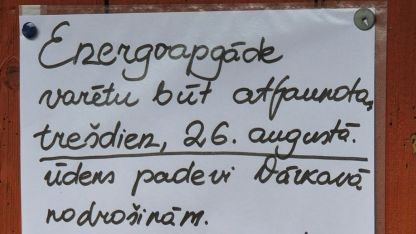 Energoapgāde
varētu būt atjaunota,
trešdien, 26. augustā.
ūdens padevi Vārkavā
nodrošinām.